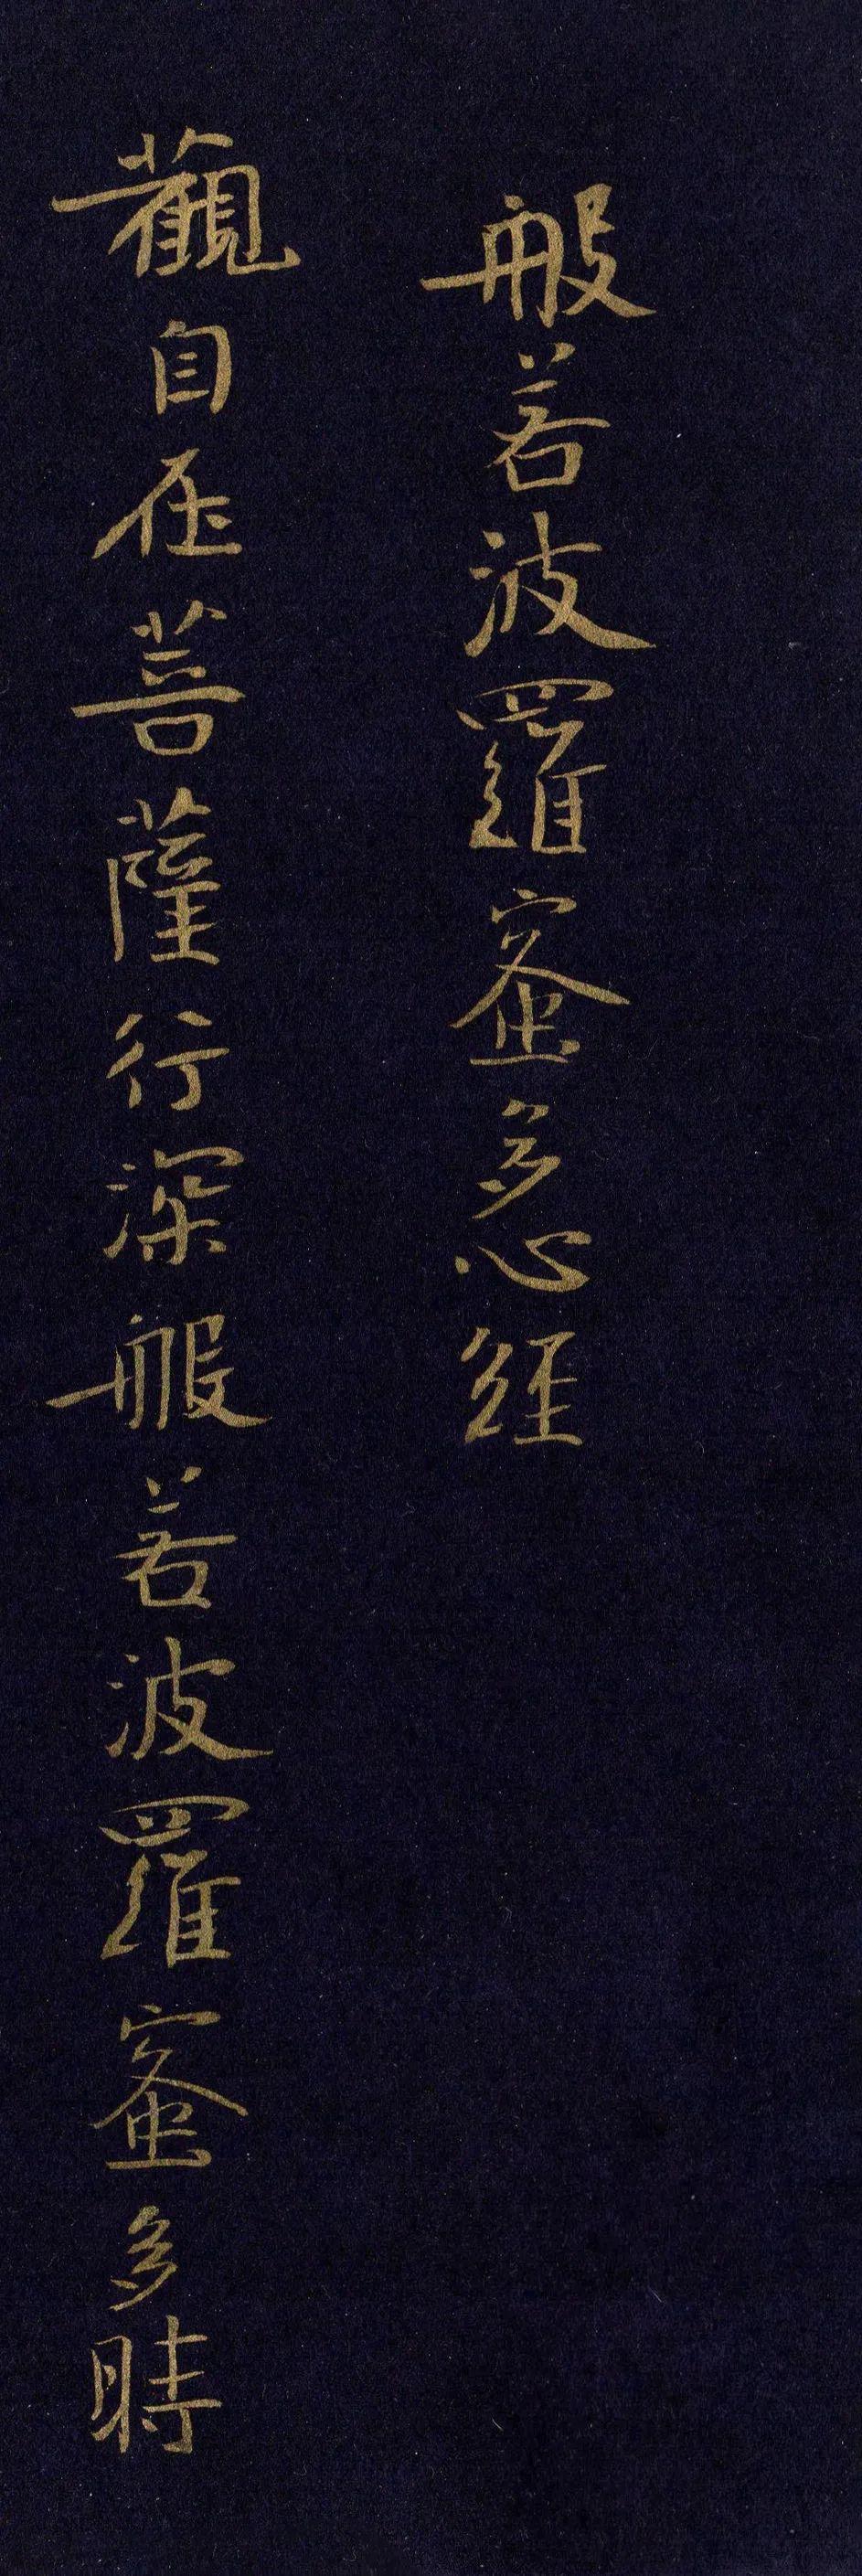 般若波羅蜜多心經
觀自在菩薩行深般若波羅蜜多時